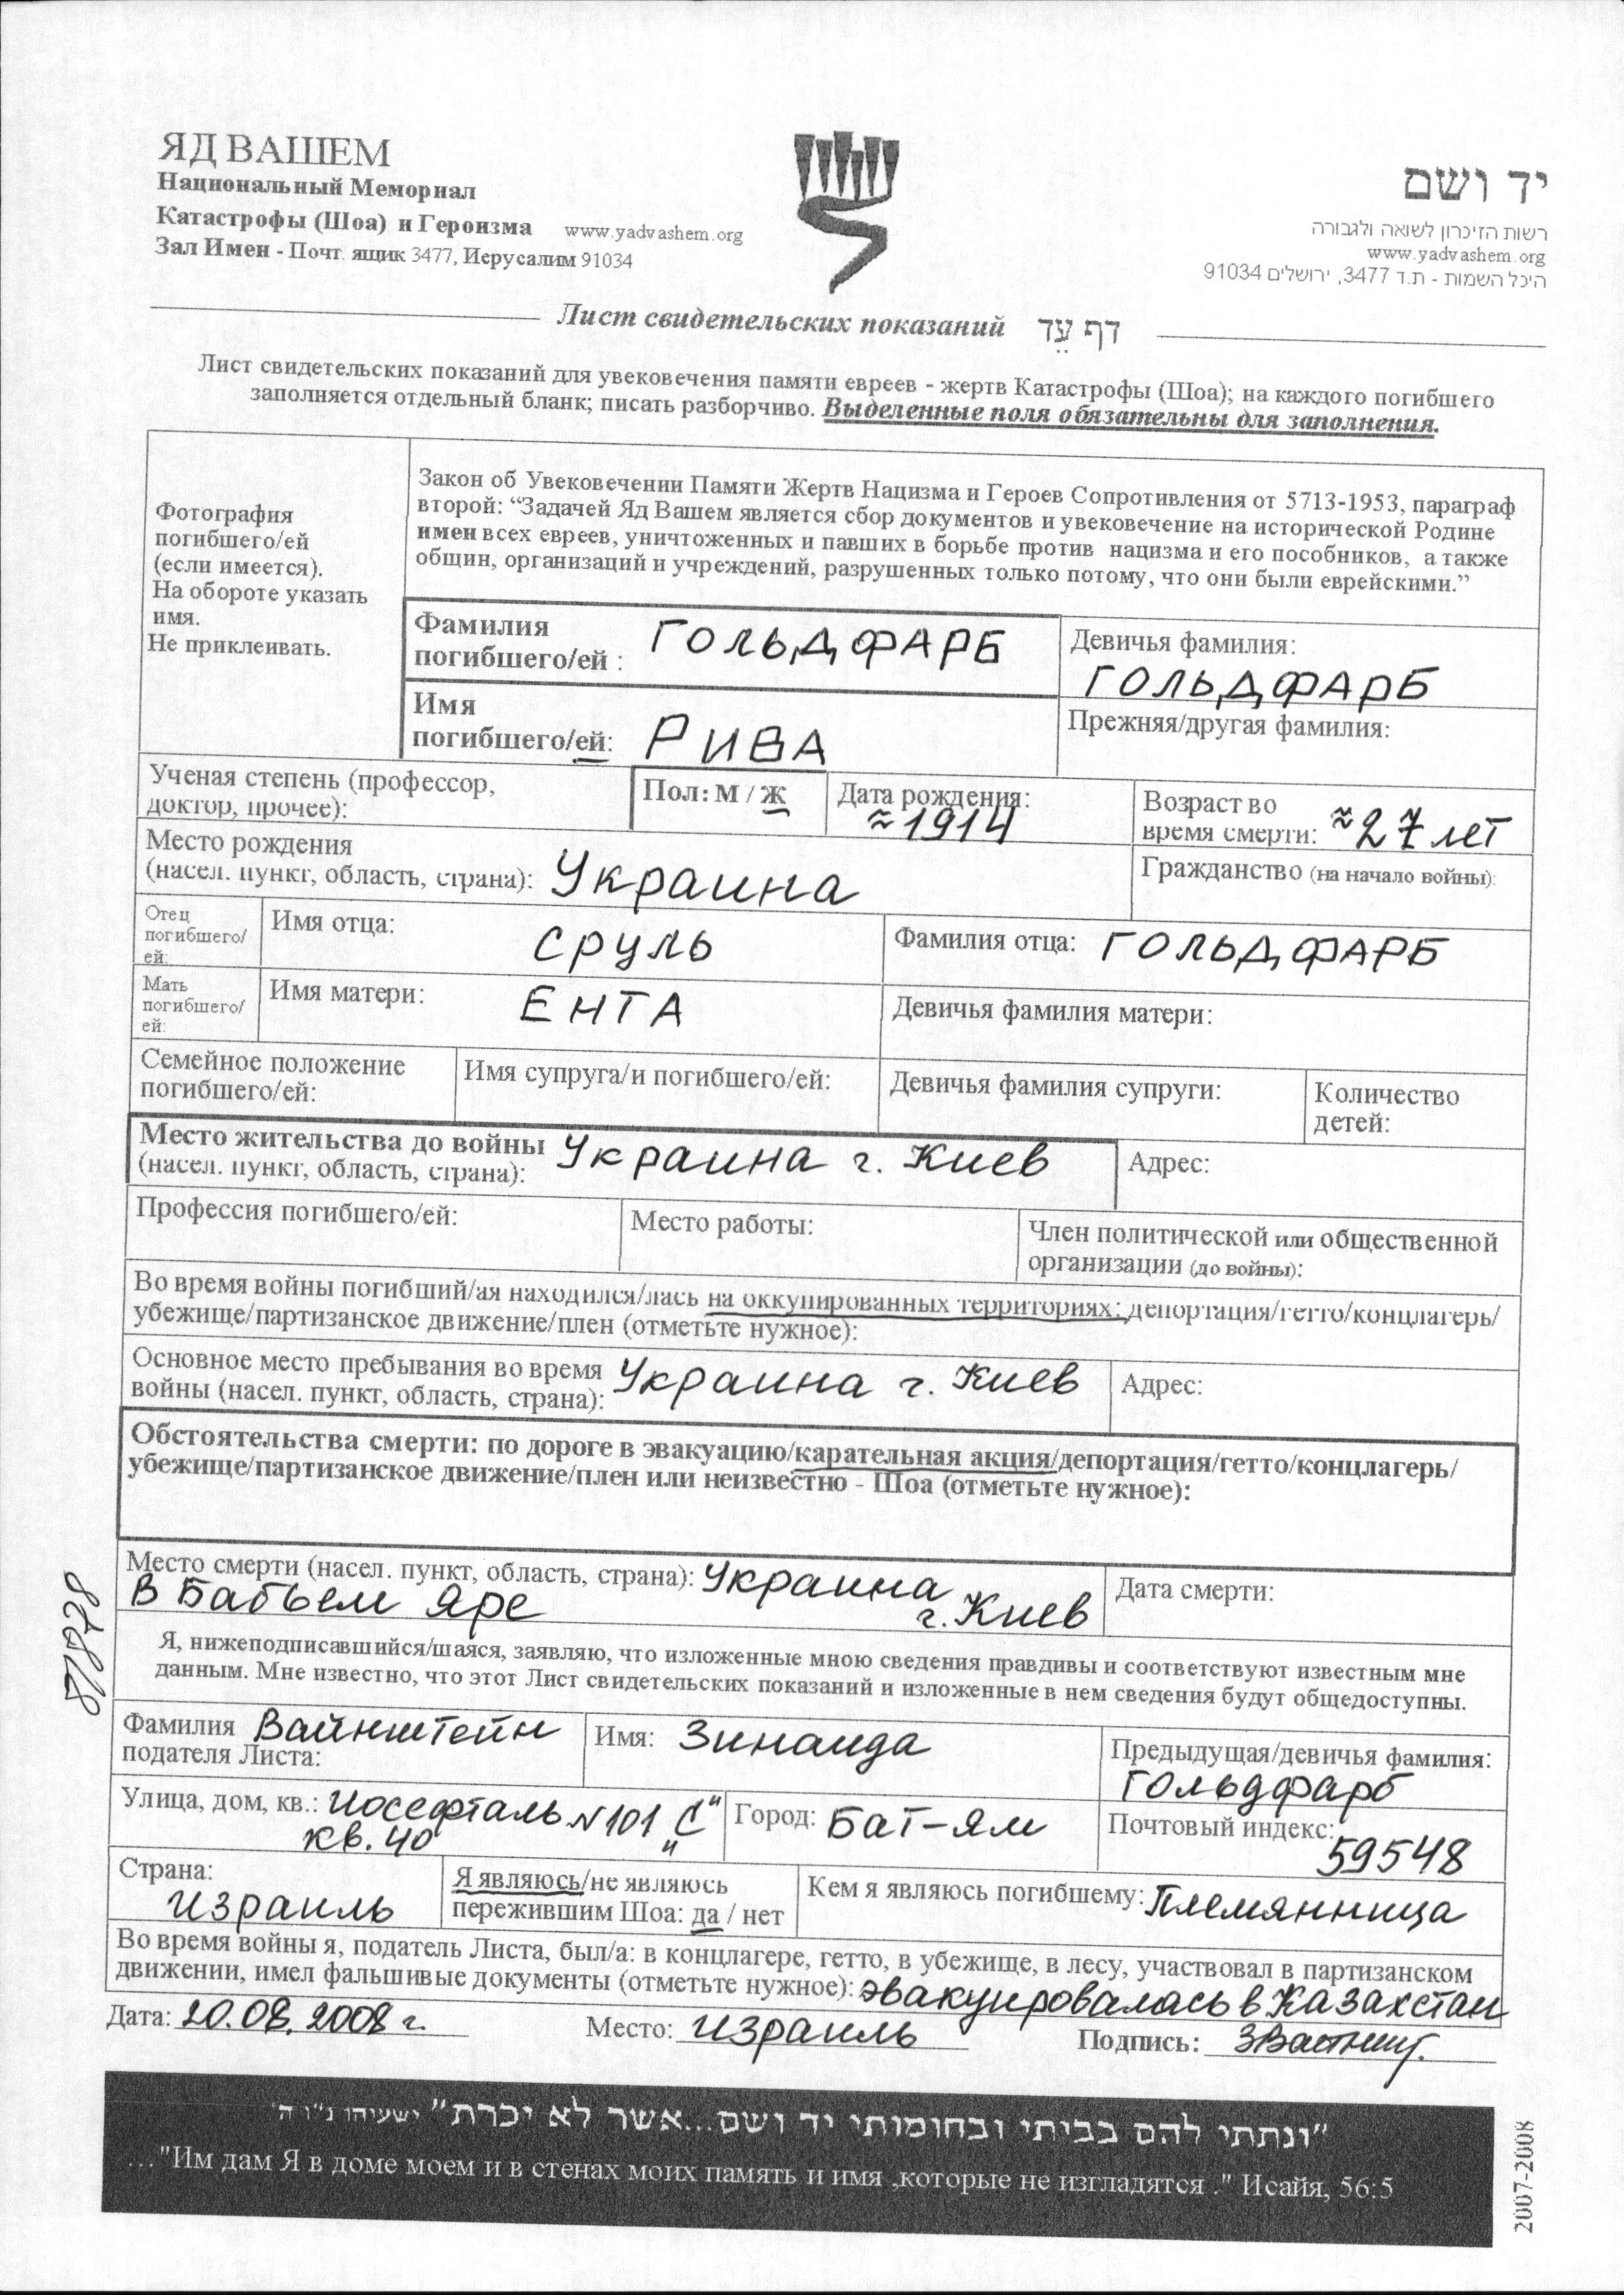 ЯД ВАШЕМ
Национальный Мемориал
Катастрофы (Шоа) и Героизма www.yadvashem.org
Зал Имен - Почт. ящик 3477, Иерусалим 91034
יד ושם
רשות הזיכרון לשואה ולגבורה
www.yadvashem.org
היכל השמות - ת.ד 3477, ירושלים 91034
Лист свидетельских показаний דף עֵד
Лист свидетельских показаний для увековечения памяти евреев - жертв Катастрофы (Шоа); на каждого погибшего
заполняется отдельный бланк; писать разборчиво. Выделенные поля обязательны для заполнения.
Фотография
погибшего/ей
(если имеется).
На обороте указать
имя.
Не приклеивать.
Закон об Увековечении Памяти Жертв Нацизма и Героев Сопротивления от 5713-1953, параграф
второй: “Задачей Яд Вашем является сбор документов и увековечение на исторической Родине
имен всех евреев, уничтоженных и павших в борьбе против нацизма и его пособников, а также
общин, организаций и учреждений, разрушенных только потому, что они были еврейскими.”
Фамилия
погибшего/ей : ГОЛЬДФАРБ
Девичья фамилия:
ГОЛЬДФАРБ
Имя
погибшего/ей: РИВА
Прежняя/другая фамилия:
Ученая степень (профессор,
доктор, прочее):
Пол: М / Ж
Дата рождения:
≈1914
Возраст во
время смерти: ≈27 лет
Место рождения
(насел. пункт, область, страна): Украина
Гражданство (на начало войны):
Отец
погибшего/
ей:
Имя отца: СРУЛЬ
Фамилия отца: ГОЛЬДФАРБ
Мать
погибшего/
ей:
Имя матери: ЕНТА
Девичья фамилия матери:
Семейное положение
погибшего/ей:
Имя супруга/и погибшего/ей:
Девичья фамилия супруги:
Количество
детей:
Место жительства до войны
(насел. пункт, область, страна): Украина г. Киев
Адрес:
Профессия погибшего/ей:
Место работы:
Член политической или общественной
организации (до войны):
Во время войны погибший/ая находился/лась на оккупированных территориях: депортация/гетто/концлагерь/
убежище/партизанское движение/плен (отметьте нужное):
Основное место пребывания во время
войны (насел. пункт, область, страна): Украина г. Киев
Адрес:
Обстоятельства смерти: по дороге в эвакуацию/карательная акция/депортация/гетто/концлагерь/
убежище/партизанское движение/плен или неизвестно - Шоа (отметьте нужное):
Место смерти (насел. пункт, область, страна): Украина
В Бабьем Яре г. Киев
Дата смерти:
Я, нижеподписавшийся/шаяся, заявляю, что изложенные мною сведения правдивы и соответствуют известным мне
данным. Мне известно, что этот Лист свидетельских показаний и изложенные в нем сведения будут общедоступны.
Фамилия Вайнштейн
подателя Листа:
Имя: Зинаида
Предыдущая/девичья фамилия:
Гольдфарб
Улица, дом, кв.: Иосефталь N 101 "С"
кв. 40
Город: Бат-Ям
Почтовый индекс:
59548
Страна:
Израиль
Я являюсь/не являюсь
пережившим Шоа: да / нет
Кем я являюсь погибшему: Племянница
Во время войны я, податель Листа, был/а: в концлагере, гетто, в убежище, в лесу, участвовал в партизанском
движении, имел фальшивые документы (отметьте нужное): эвакуировалась в Казахстан
Дата: 20.08.2008 г. Место: Израиль Подпись:
"ונתתי להם בביתי ובחומותי יד ושם...אשר לא יכרת" ישעיהו נ"ו ה'
..."Им дам Я в доме моем и в стенах моих память и имя ,которые не изгладятся ." Исайя, 56:5
2007-2008